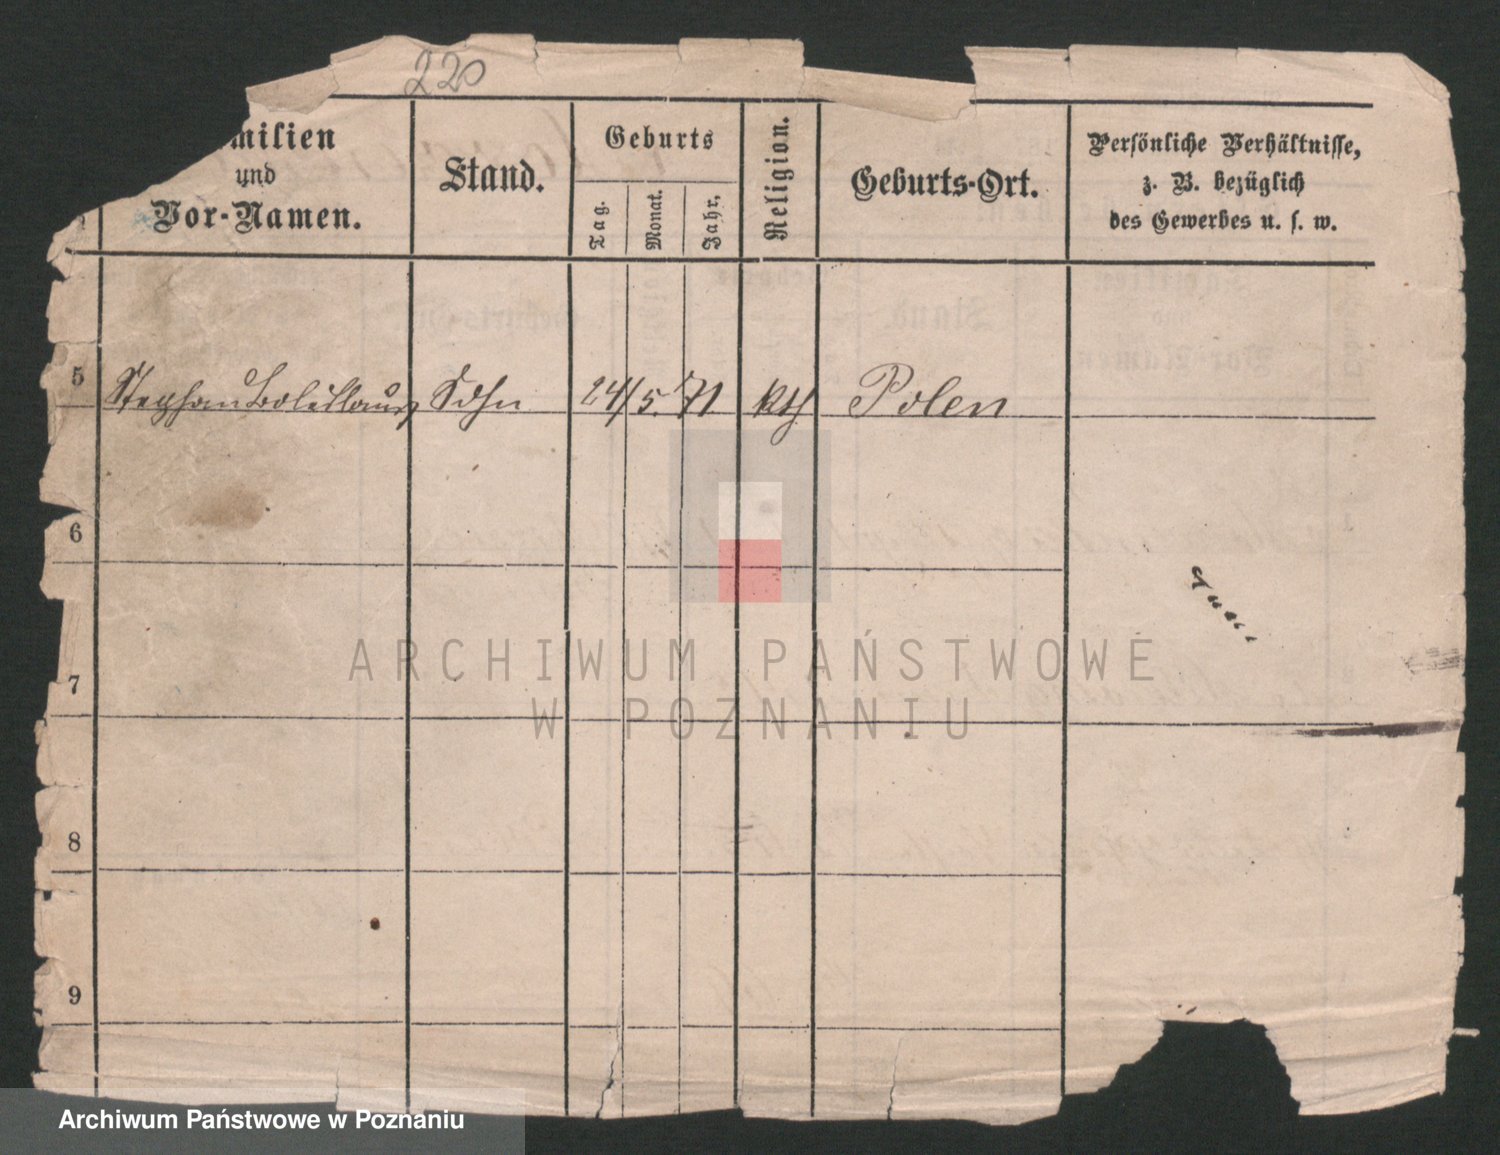 220
milien
und
Vor-Namen.
Stand.
Geburts
Tag.
Monat.
Jahr.
Religion.
Geburts-Ort.
Persönliche Verhältnisse,
z. B. bezüglich
des Gewerbes u. s. w.
5 Stephan Boleslaus Sohn 24/ 5. 71 kth Polen
6
7
8
9
ARCHIWUM PAŃSTWOWE
W POZNANIU
Archiwum Państwowe w Poznaniu